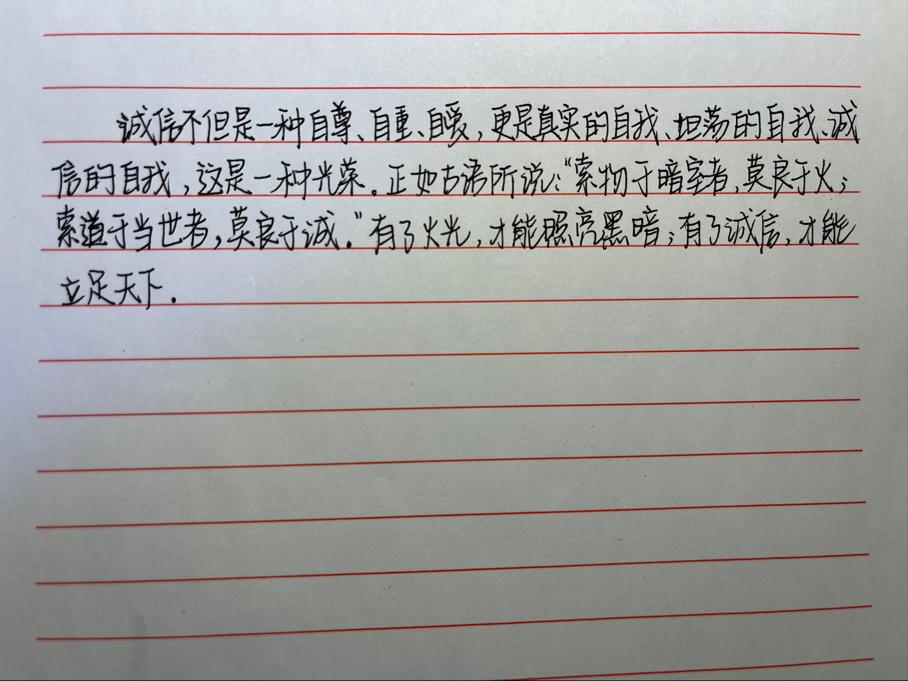 诚信不但是一种自尊、自重、自爱，更是真实的自我、坦荡的自我、诚
信的自我，这是一种光荣。正如古语所说：“索物于暗室者，莫良于火；
索道于当世者，莫良于诚。”有了火光，才能照亮黑暗；有了诚信，才能
立足天下。